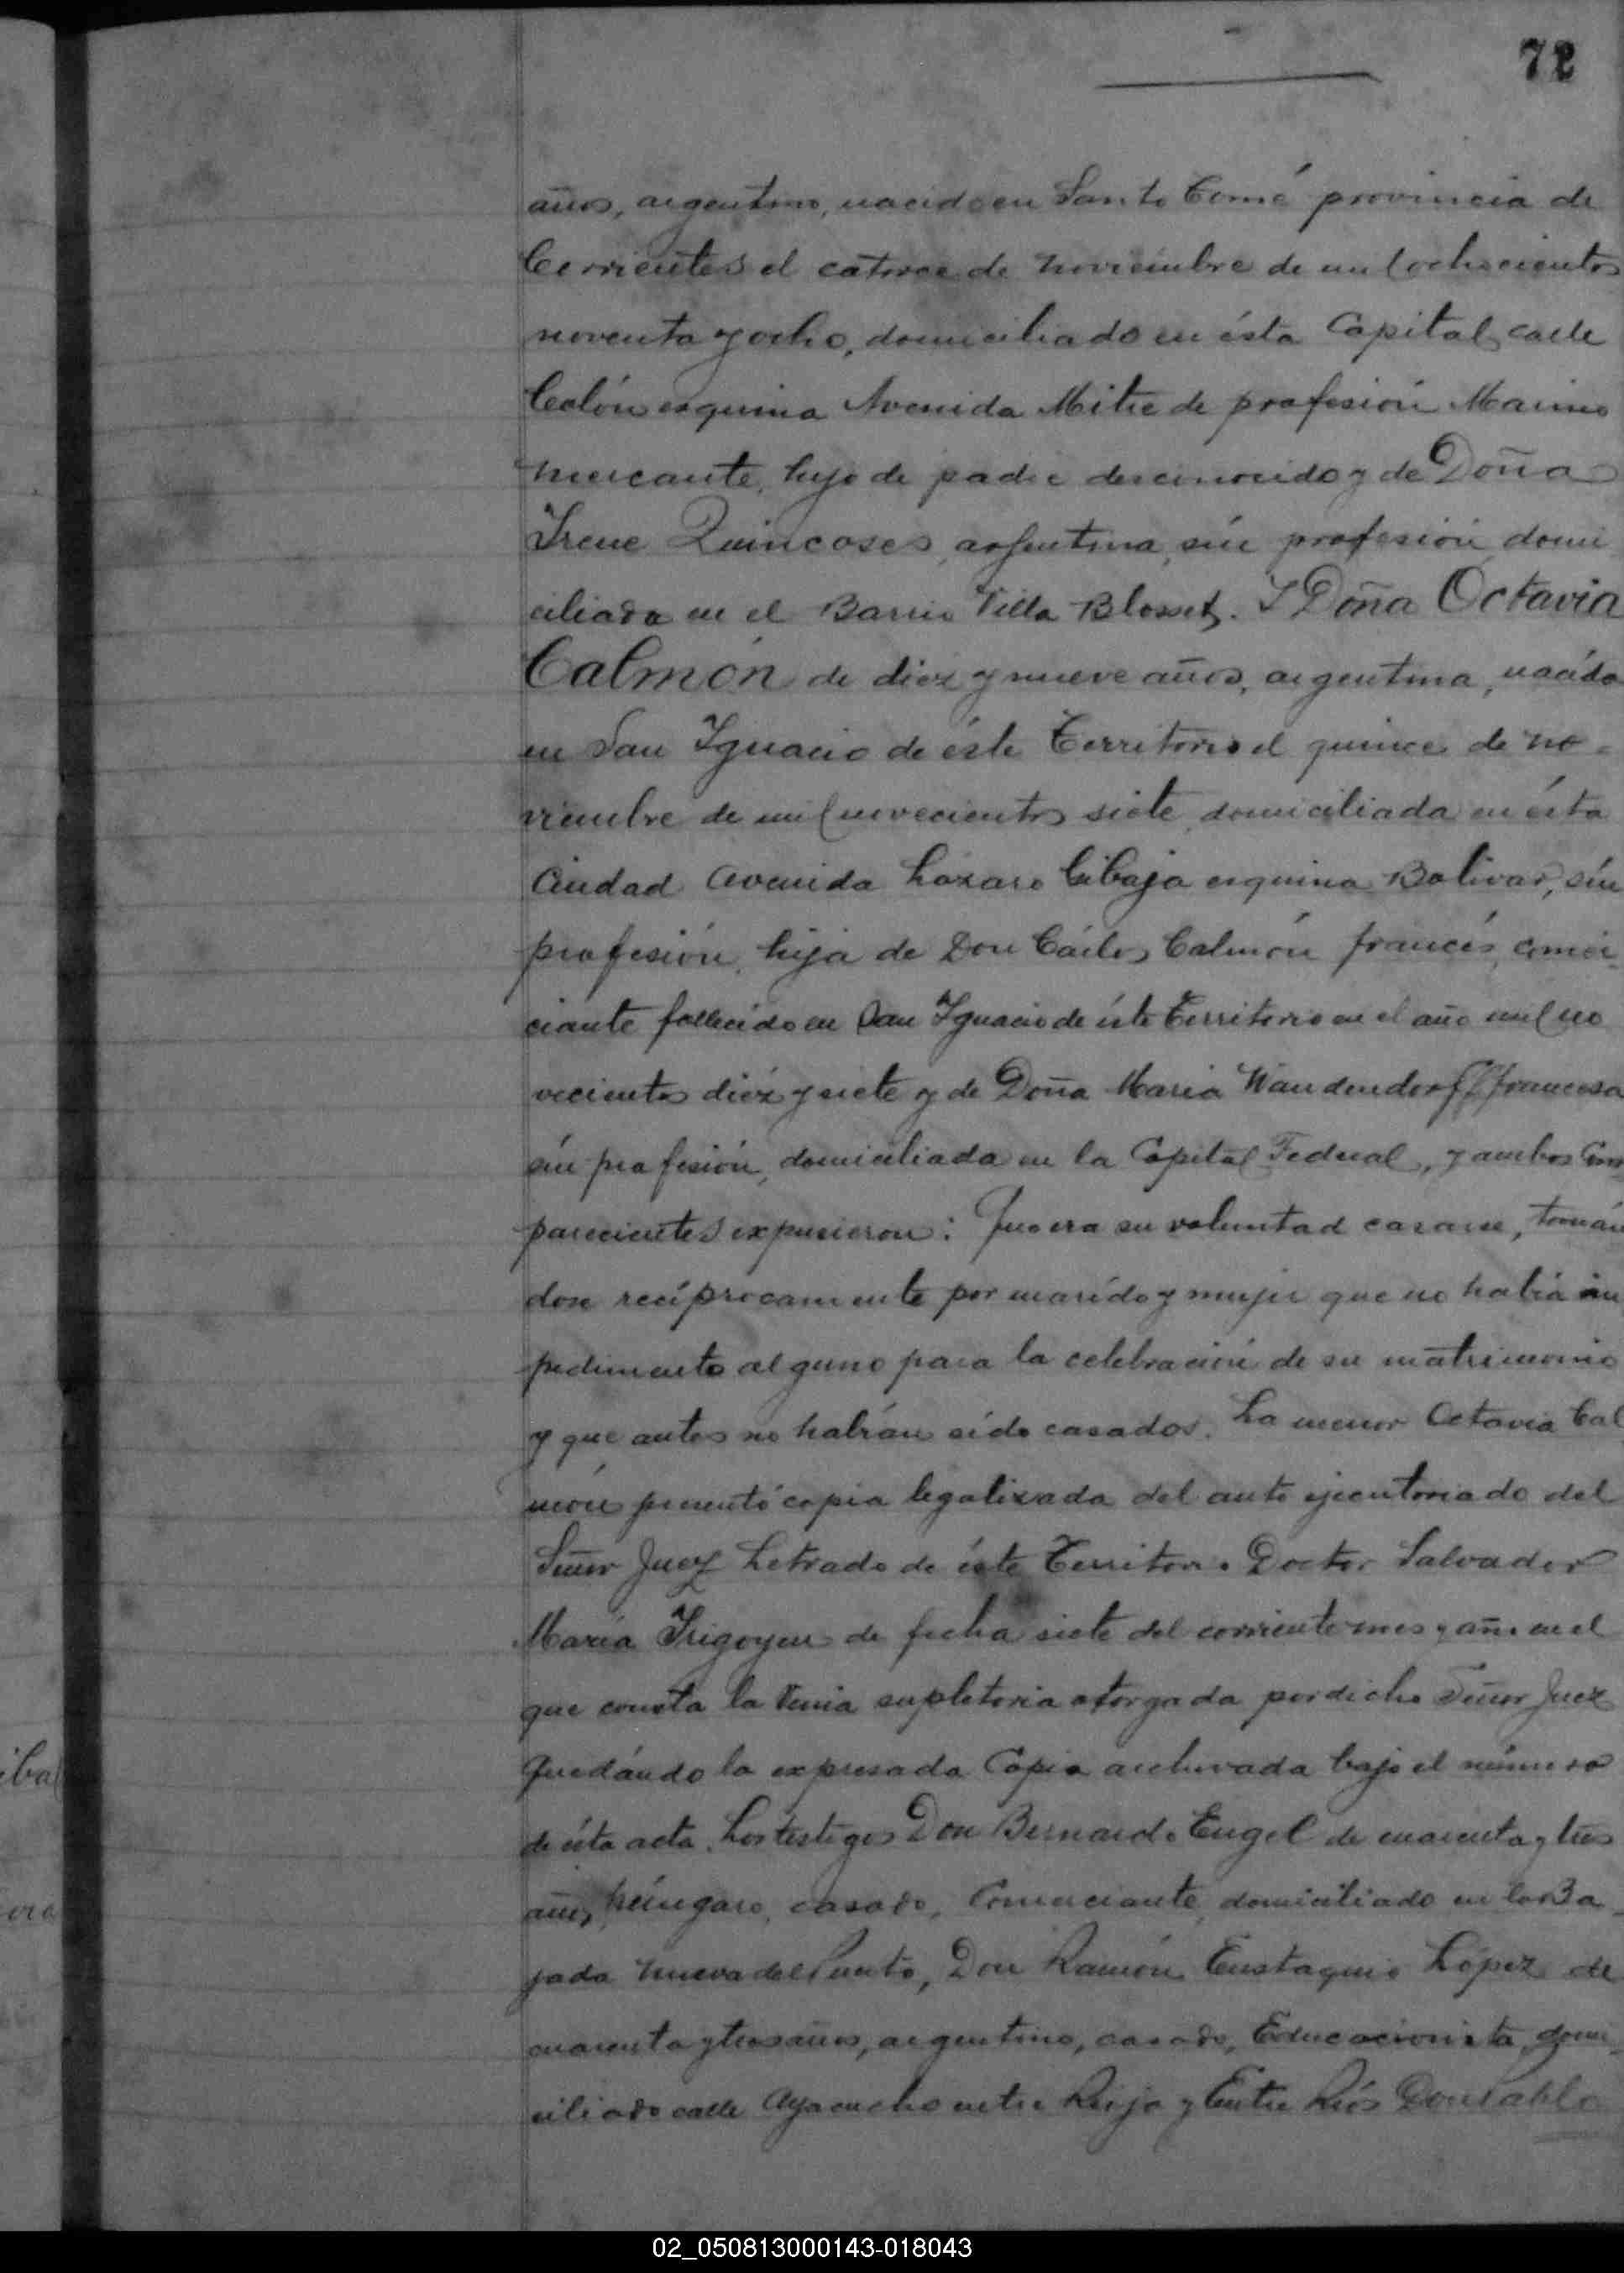 72
años, argentino, nacido en Santo Tomé provincia de
Corrientes el catorce de noviembre de mil ochocientos
noventa y ocho, domiciliado en ésta Capital calle
Colón esquina Avenida Mitre de profesión Marino
mercante, hijo de padre desconocido y de Doña
Irene Quincoses, argentina, sin profesión domi
ciliada en el Barrio Villa Blosset. Y Doña Octavia
Calmón de diez y nueve años, argentina, nacida
en San Ignacio de éste Territorio el quince de no-
viembre de mil novecientos siete, domiciliada en ésta
Ciudad Avenida Lázaro Gibaja esquina Bolivar, sin
profesión, hija de Don Cárlos Calmón francés, comer-
ciante fallecido en San Ignacio de éste Territorio en el año mil no
vecientos diéz y siete y de Doña Maria Wandendorff francesa
sin profesión, domiciliada en la Capital Federal, y ambos Com
parecientes expusieron: Que era su voluntad casarse, tomán
dose recíprocamente por marído y mujer que no habiá im
pedimento alguno para la celebración de su matrimonio
y que antes no habían sído casados. La menor Octavia Cal
món presentó copia legalizada del auto ejecutoriado del
Señor Juez Letrado de éste Territorio Doctor Salvador
María Irigoyen de fecha siete del corriente mes y año en el
que consta la Venia supletoria otorgada por dicho Señor Juez
Quedándo la expresada Copia archivada bajo el número
de ésta acta. Los testigos Don Bernardo Engel de cuarenta y tres
años, húngaro, casado, Comerciante, domiciliado en la Ba-
jada Nueva del Puerto, Don Ramón Eustaquio López de
cuarenta y tres años, argentino, casado, Educacionista, domi-
ciliado calle Ayacucho entre Rioja y Entre Ríos Don Pablo
ibal
02_050813000143-018043